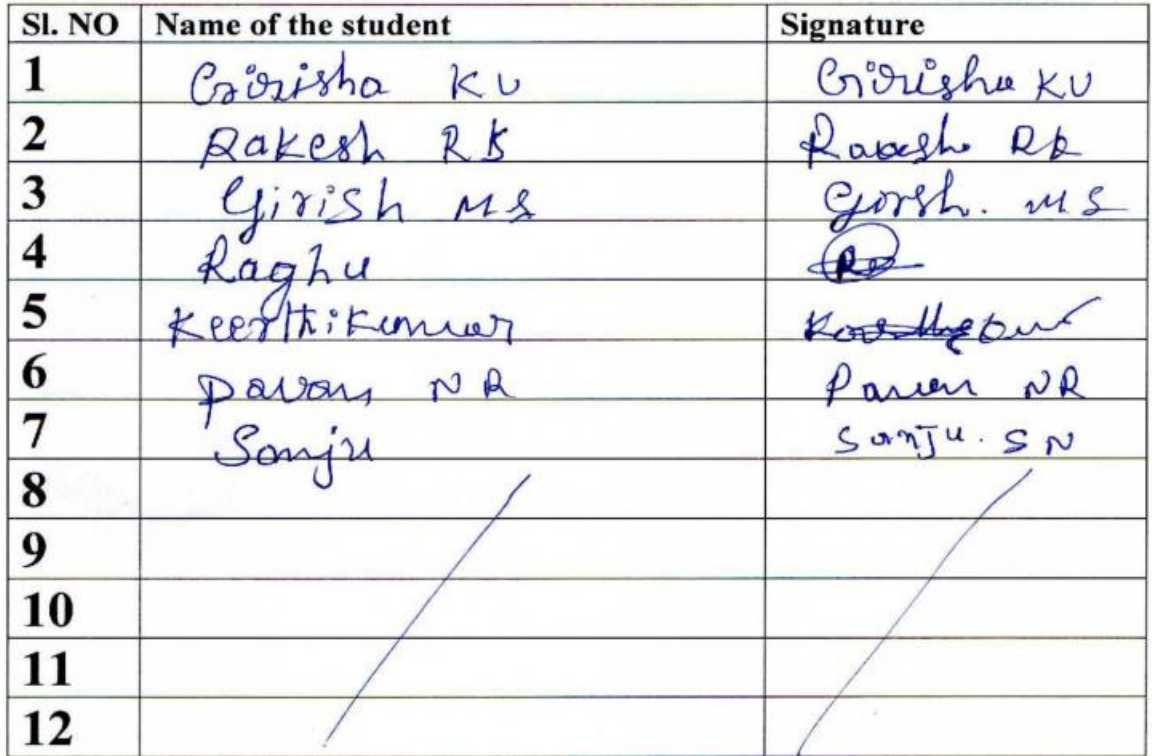 Sl. NO Name of the student Signature
1 Girisha K V Girisha K V
2 Rakesh R K Rakesh R K
3 Girish M S Girish. M S
4 Raghu
5 Keerthikumar
6 Pavan N R Pavan N R
7 Sanju Sanju. S N
8
9
10
11
12